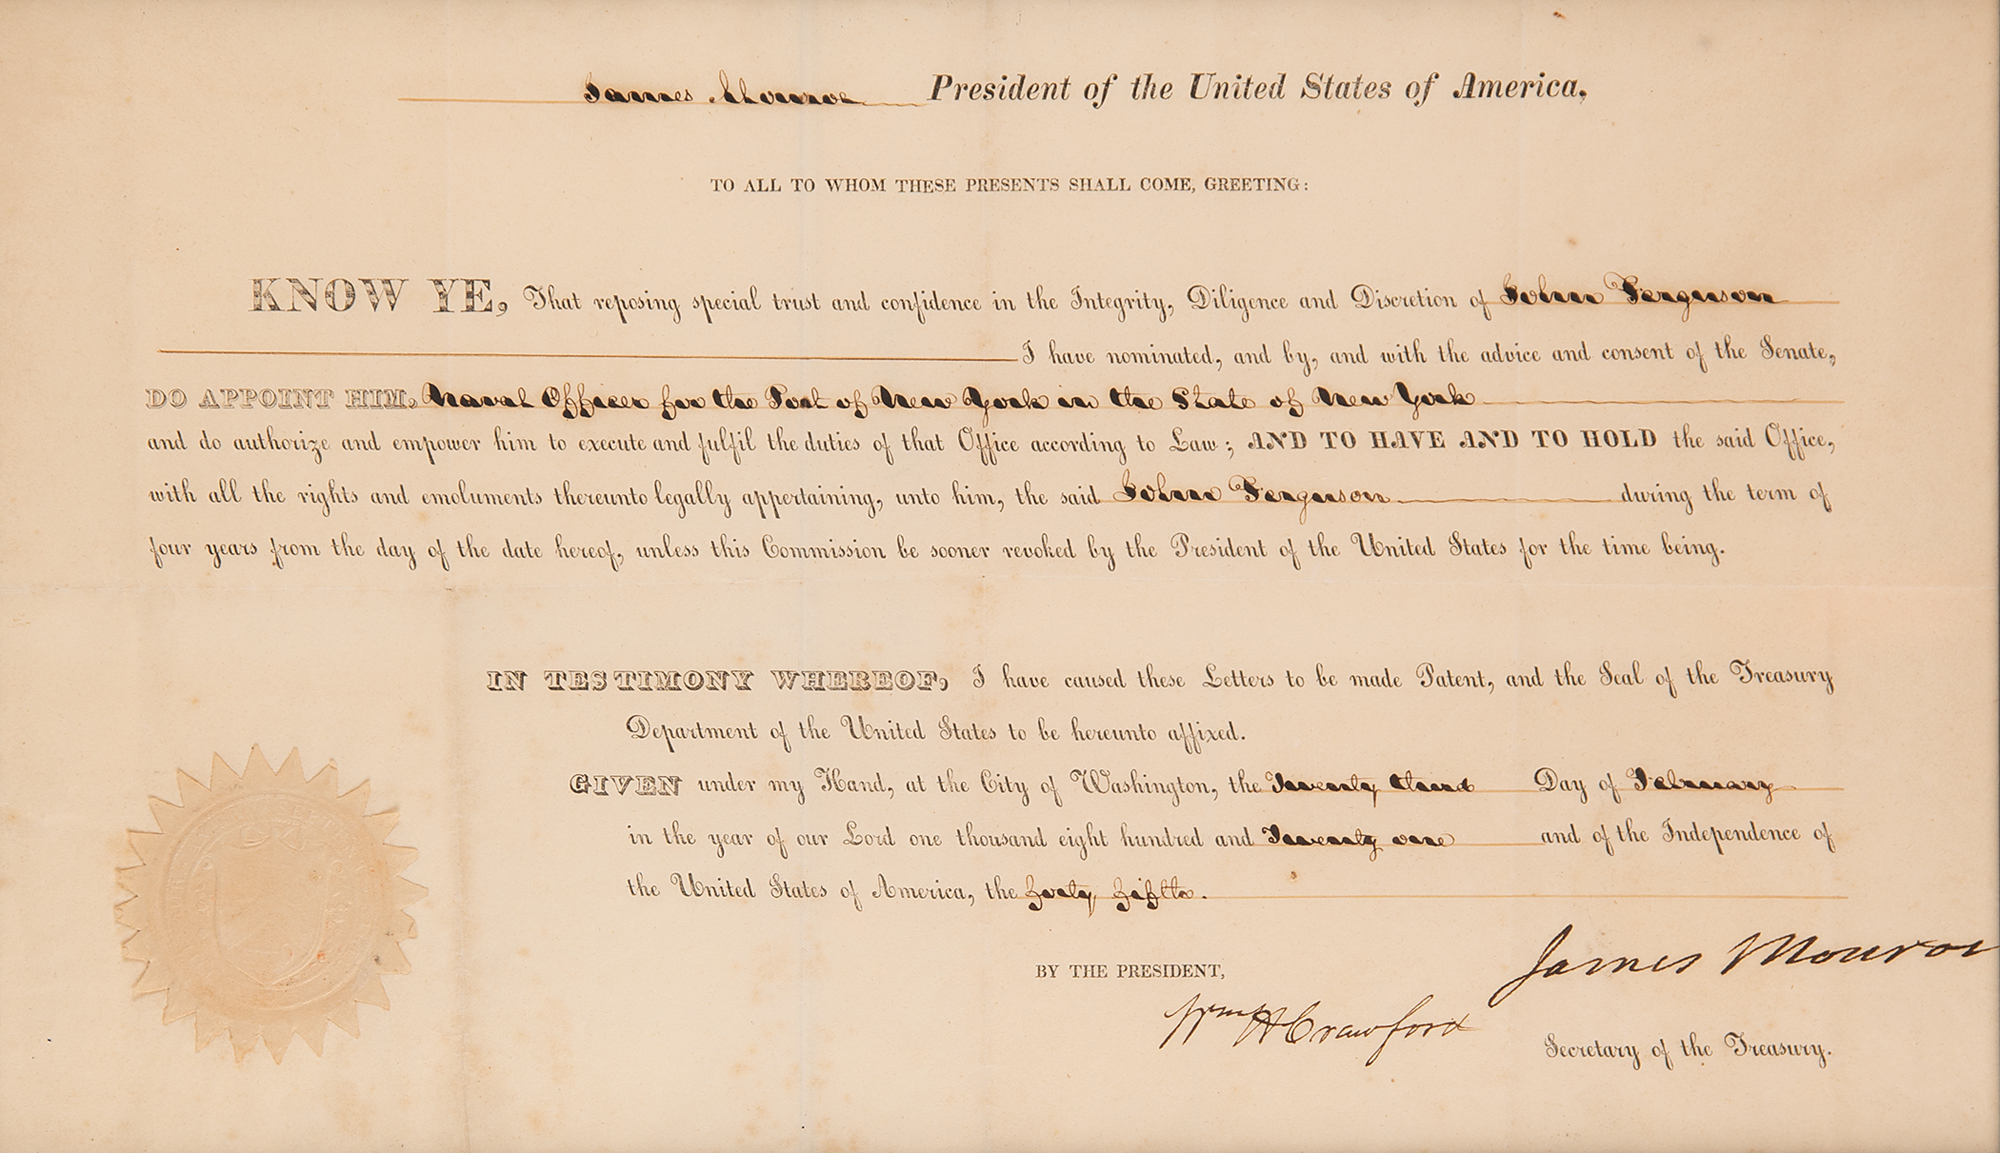 James Monroe President of the United States of America,
TO ALL TO WHOM THESE PRESENTS SHALL COME, GREETING:
KNOW YE, That reposing special trust and confidence in the Integrity, Diligence and Discretion of John Ferguson
I have nominated, and by, and with the advice and consent of the Senate,
DO APPOINT HIM, Naval Officer for the Port of New York in the State of New York
and do authorize and empower him to execute and fulfil the duties of that Office according to Law; AND TO HAVE AND TO HOLD the said Office,
with all the rights and emoluments thereunto legally appertaining, unto him, the said John Ferguson during the term of
four years from the day of the date hereof, unless this Commission be sooner revoked by the President of the United States for the time being.
IN TESTIMONY WHEREOF, I have caused these Letters to be made Patent, and the Seal of the Treasury
Department of the United States to be hereunto affixed.
GIVEN under my Hand, at the City of Washington, the Twenty Day of February
in the year of our Lord one thousand eight hundred and Twenty one and of the Independence of
the United States of America, the forty fifth.
James Monroe
BY THE PRESIDENT,
Wm H Crawford
Secretary of the Treasury.